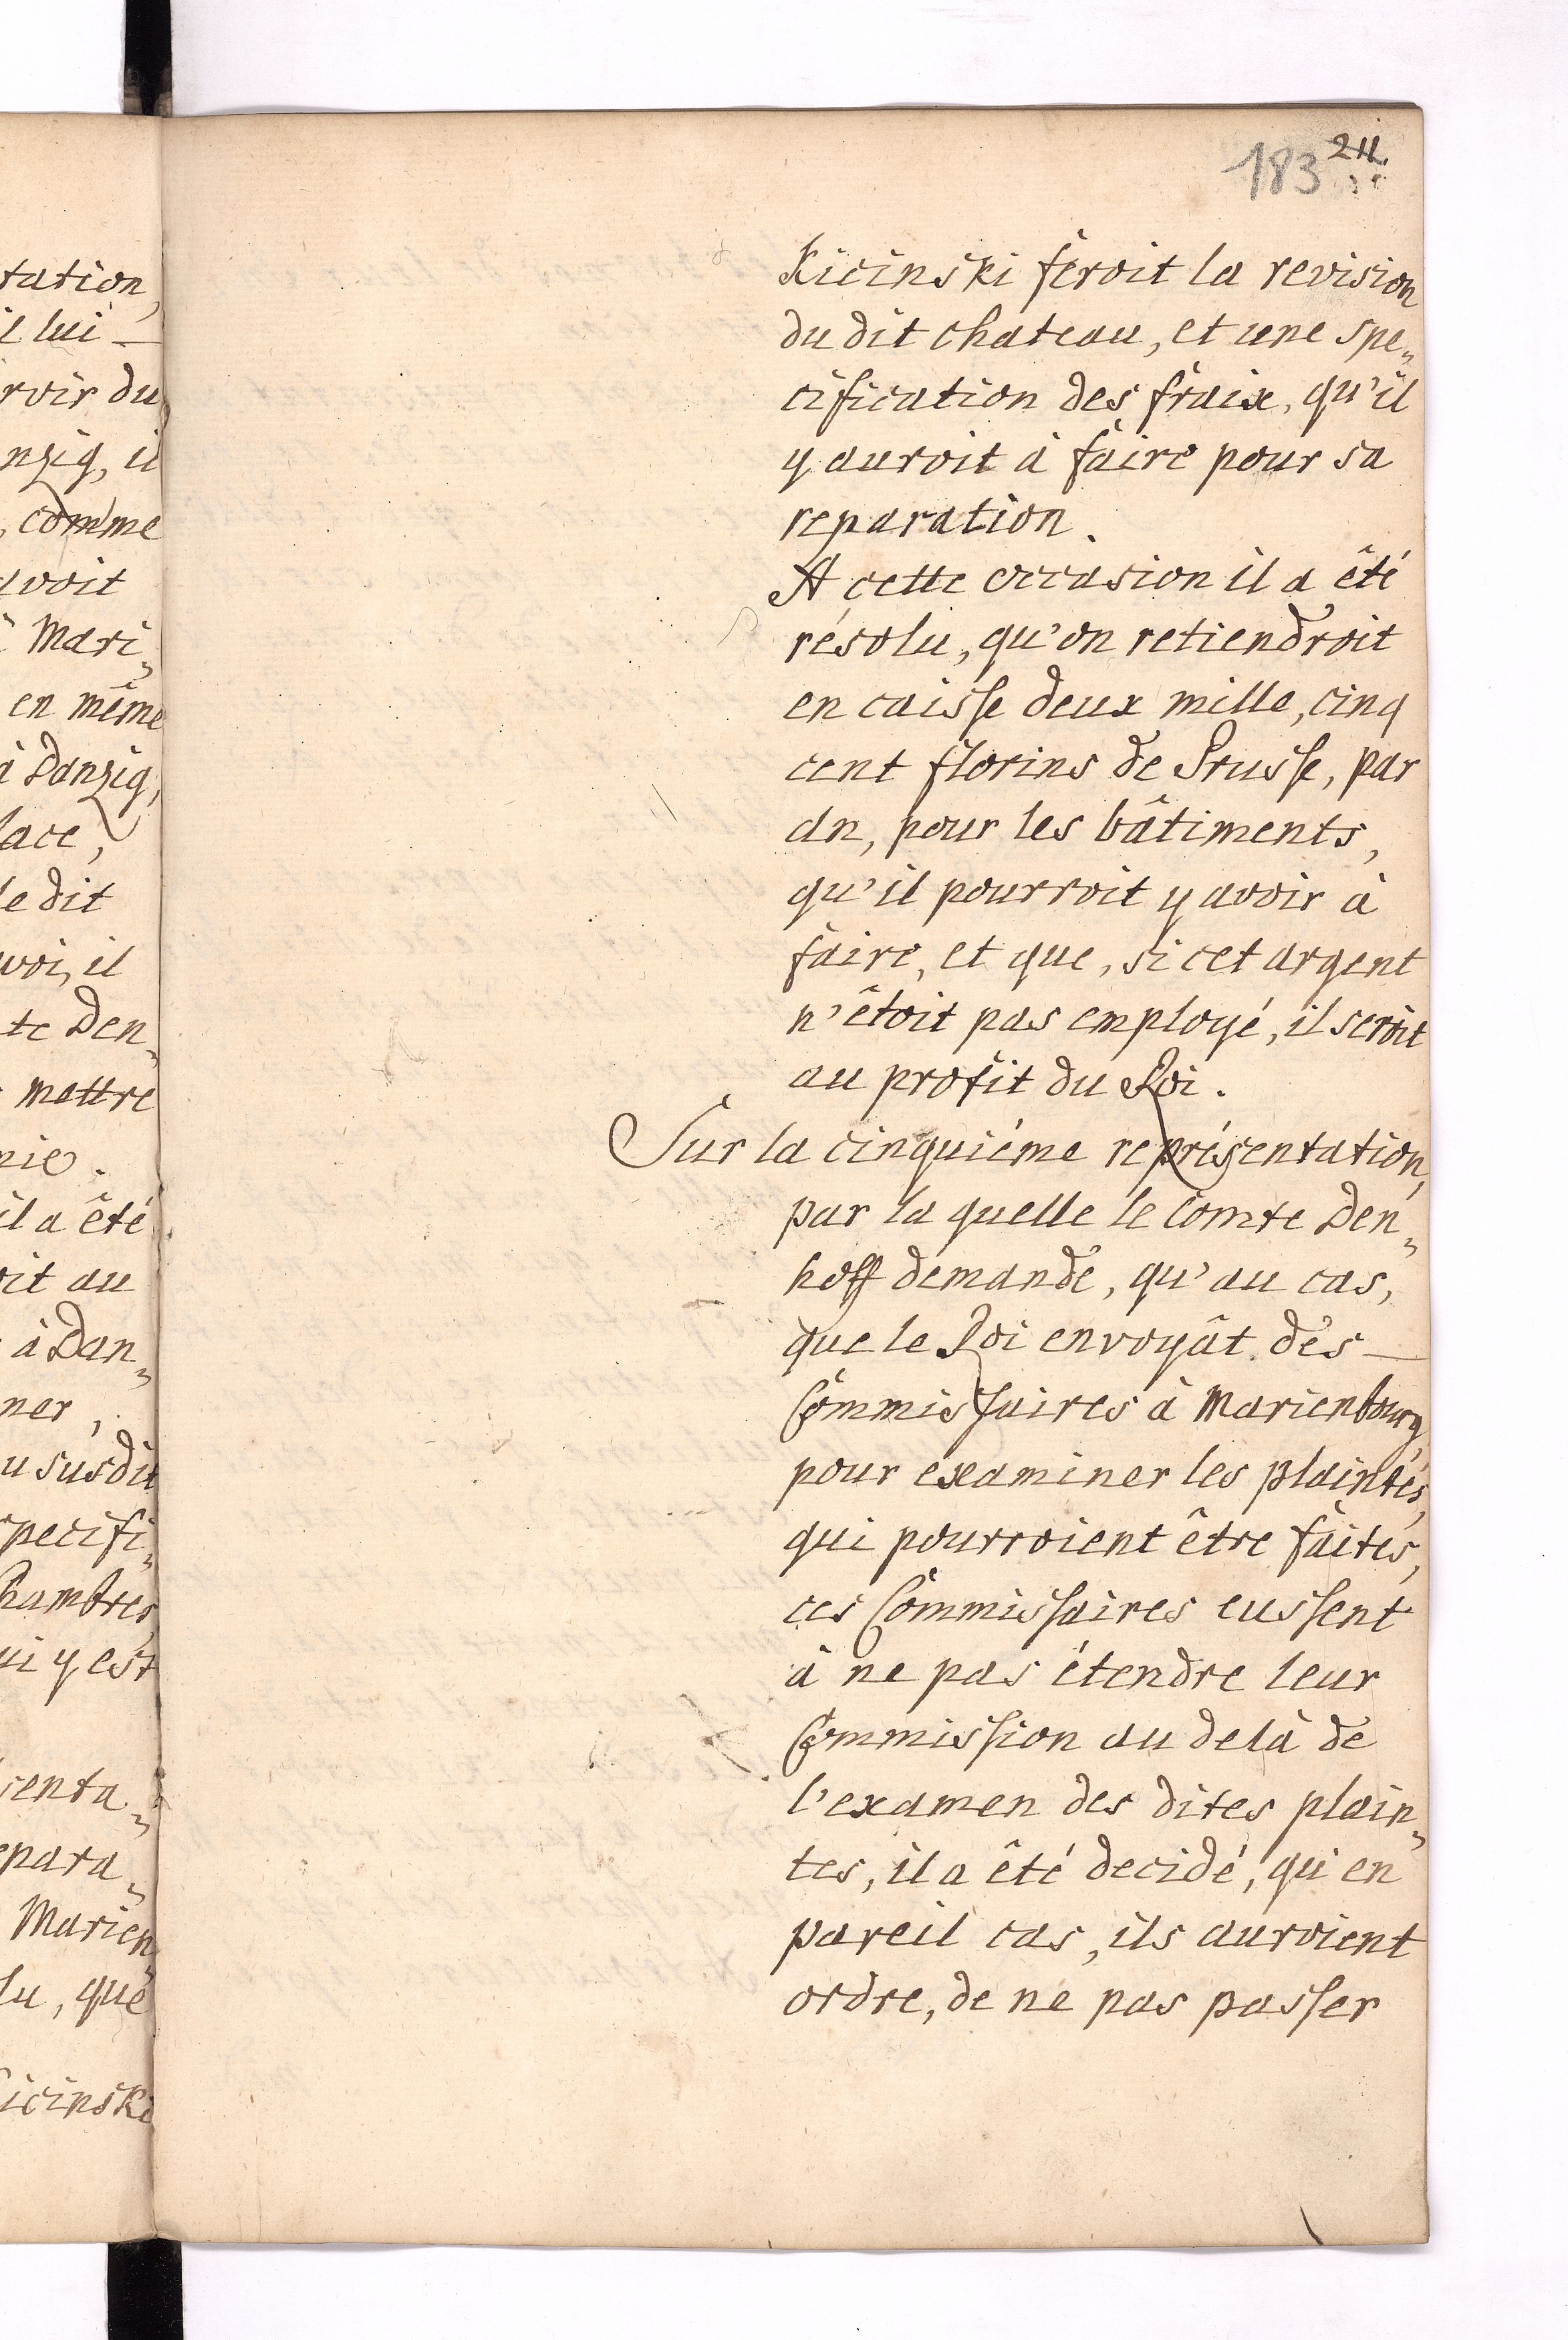 tation,
il lui —
rvoir du
nzig, il
, comme
avoit
à Mari„
en même
à Danzig,
lace,
le dit
voi, il
te Den„
mettre
nie.
il a êté
oit au
à Dan„
ner,
u susdit
specifi„
Chambres,
ui y est
senta„
epara„
Marien„
lu, que
icinski
183 211.
Kicinski feroit la revision
du dit chateau, et une spe„
cification des fraix, qu'il
y auroit à faire pour sa
reparation.
A cette occasion il a êté
résolu, qu'on retiendroit
en caisse deux mille, cinq
cent florins de Prusse, par
an, pour les bâtiments,
qu'il pourroit y avoir à
faire, et que, si cet argent
n'êtoit pas employé, il seroit
au profit du Roi.
Sur la cinquiéme représentation,
par la quelle le Comte Den„
hoff demande, qu'au cas,
que le Roi envoyât des —
Commissaires à Marienbourg,
pour examiner les plaintes,
qui pourroient être faites,
ces Commissaires eussent
à ne pas étendre leur
Commission au delà de
l'examen des dites plain„
tes, il a êté decidé, qu'en
pareil cas, ils auroient
ordre, de ne pas passer